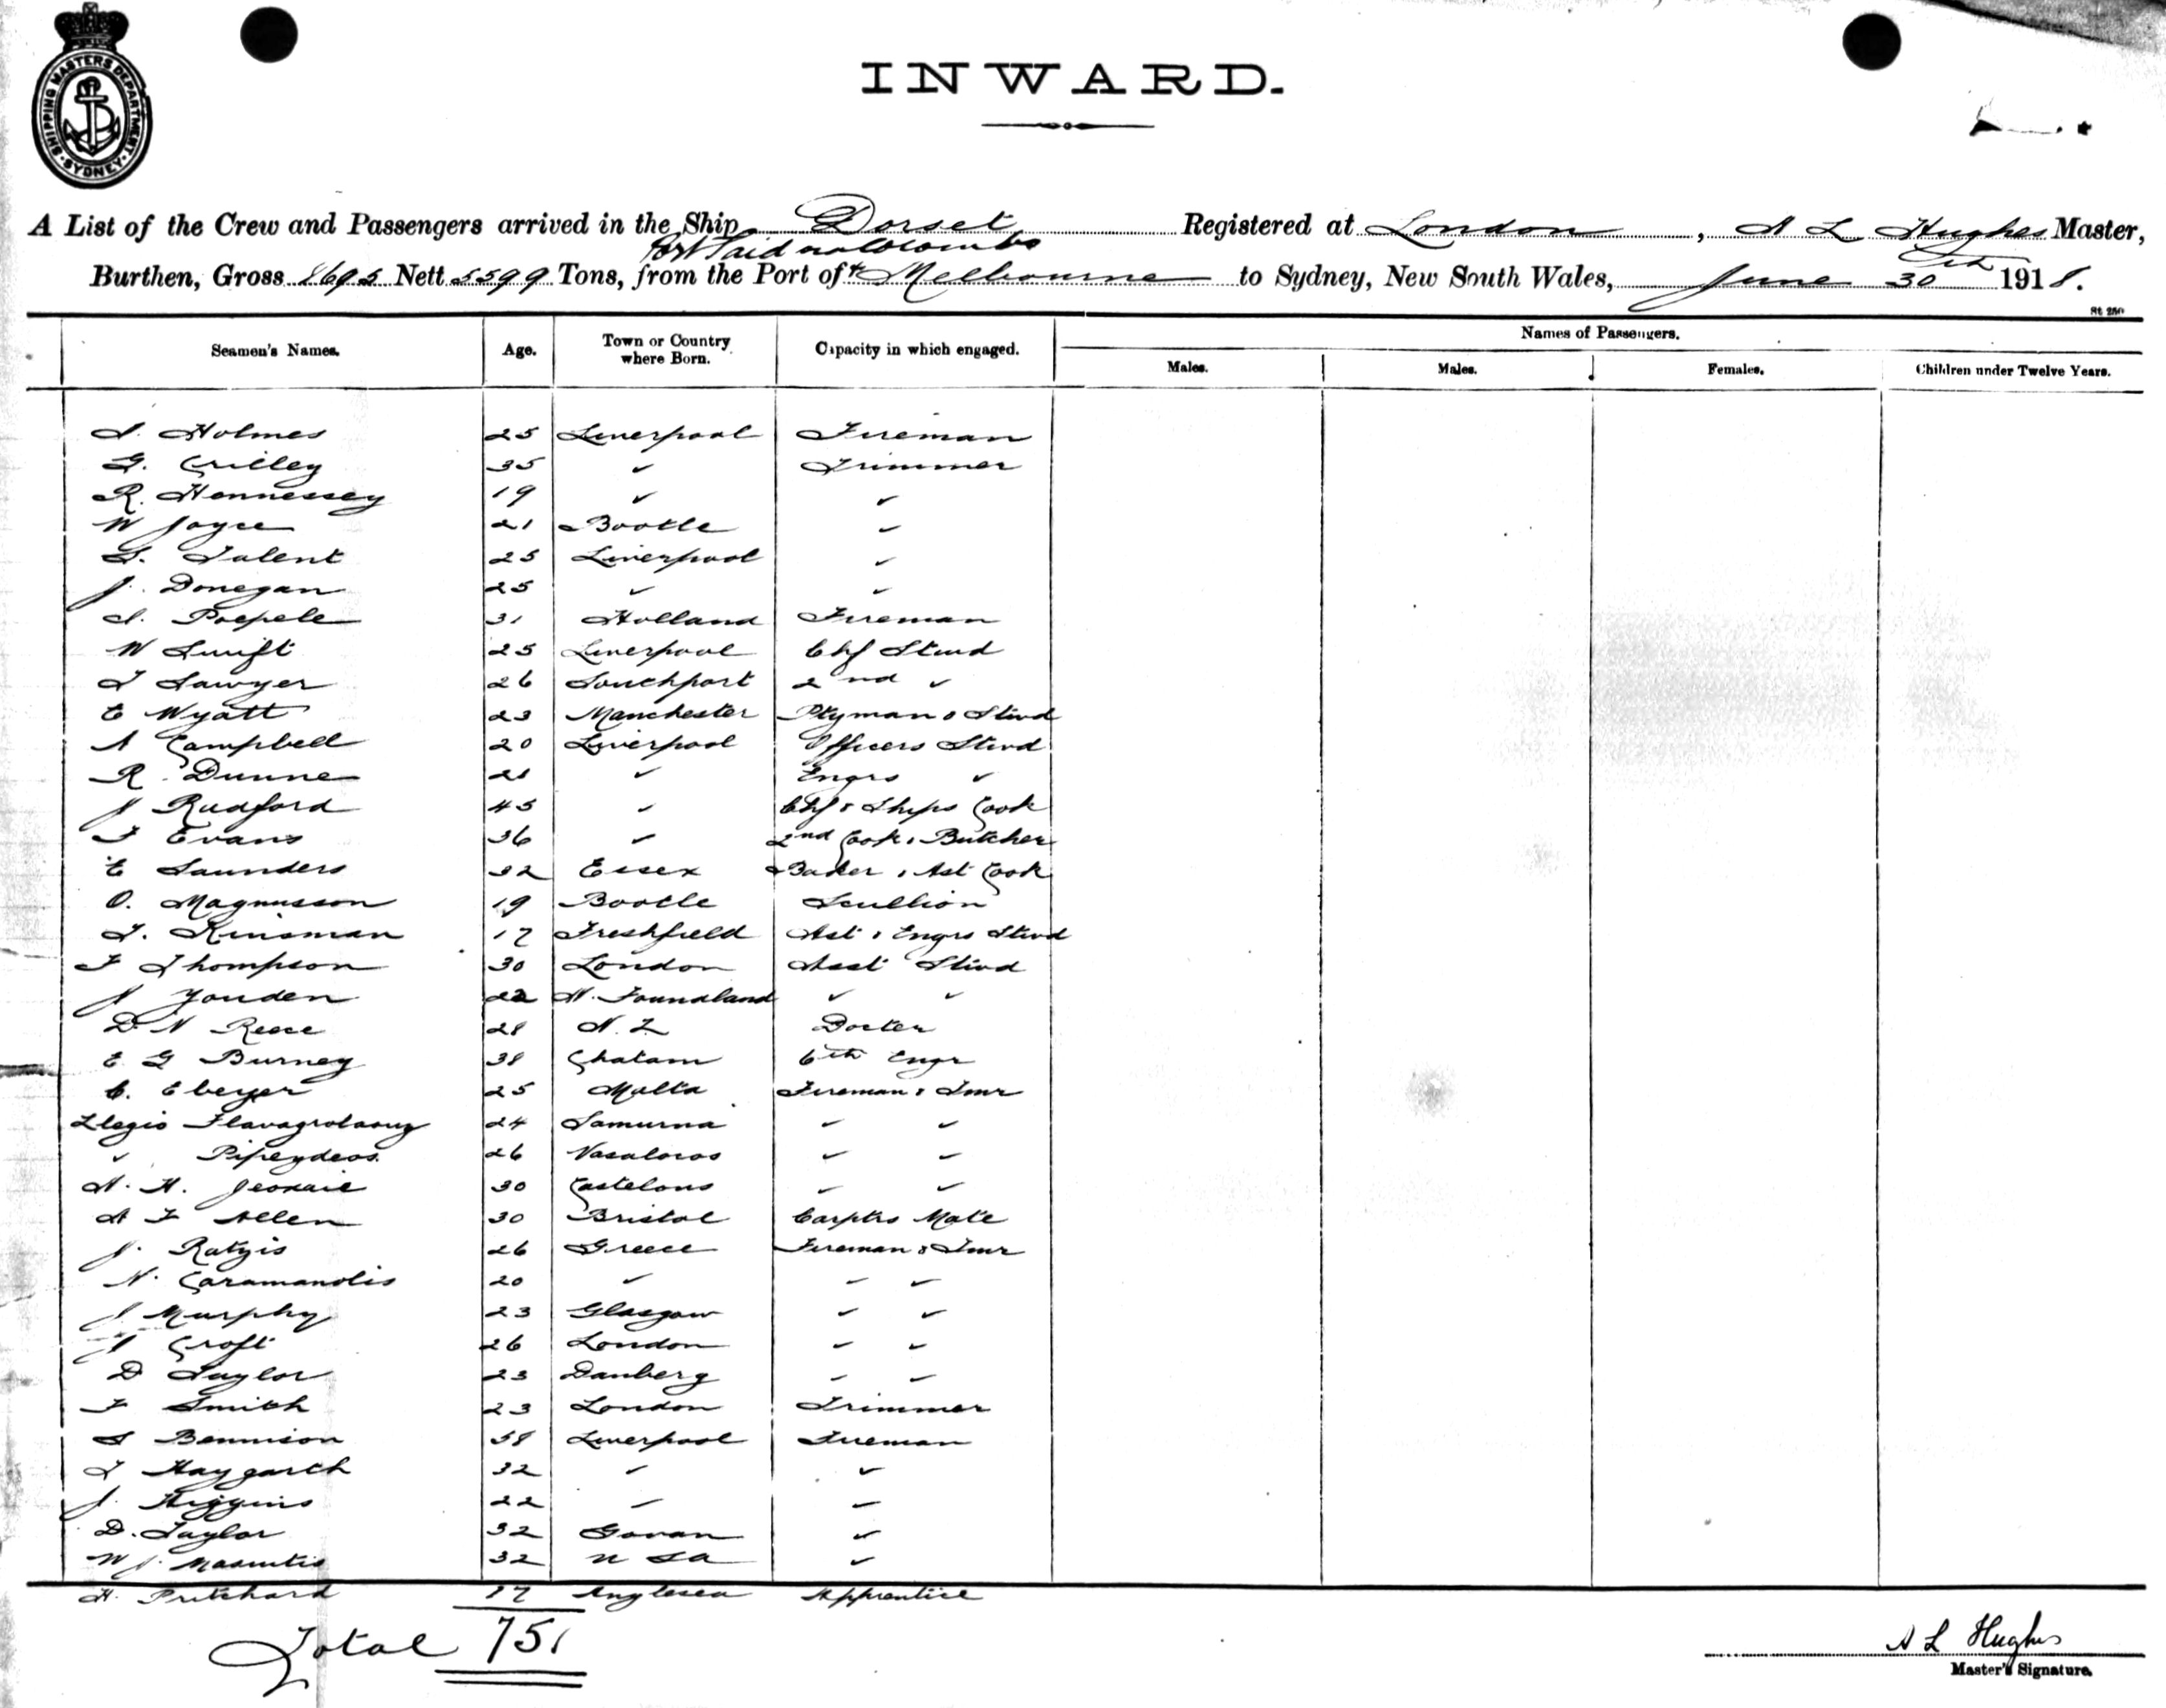 SHIPPING MASTERS DEPARTMENT · SYDNEY ·
INWARD.
A List of the Crew and Passengers arrived in the Ship Dorset Registered at London, A L Hughes Master,
Port Said Colombo
Burthen, Gross 8695 Nett 5599 Tons, from the Port of & Melbourne to Sydney, New South Wales, June 30th 1918.
St 280
Seamen's Names. Age. Town or Country where Born. Capacity in which engaged. Names of Passengers.
Males. Males. Females. Children under Twelve Years.
S. Holmes 25 Liverpool Fireman
G. Crilley 35 ✓ Trimmer
R. Hennessey 19 ✓ ✓
W Joyce 21 Bootle ✓
S. Talent 25 Liverpool ✓
J. Donegan 25 ✓ ✓
S. Poepele 31 Holland Fireman
W Swift 25 Liverpool Chf Stwd
T Sawyer 26 Southport 2nd ✓
E Wyatt 23 Manchester Ptyman & Stwd
A Campbell 20 Liverpool Officers Stwd
R. Dunne 21 ✓ Engrs ✓
J Radford 45 ✓ Chf & Ships Cook
F Evans 36 ✓ 2nd Cook & Butcher
E Saunders 32 Essex Baker & Ast Cook
O. Magnusson 19 Bootle Scullion
T. Kinsman 17 Freshfield Ast & Engrs Stwd
F Thompson 30 London Asst Stwd
J Youden 22 N. Foundland ✓ ✓
D N Reece 28 N. Z Docter
E G Burney 38 Chatam 6th Engr
C. Ebeyer 25 Malta Fireman & Tmr
24 Samurna ✓ ✓
✓ Pipeydeos 26 Vasaloros ✓ ✓
30 Castelous ✓ ✓
A F Allen 30 Bristol Carptrs Mate
J. Ratzis 26 Greece Fireman & Tmr
N. Caramanolis 20 ✓ ✓ ✓
J Murphy 23 Glasgow ✓ ✓
J Croft 26 London ✓ ✓
D Taylor 23 Danberg ✓ ✓
F Smith 23 London Trimmer
S Bennison 38 Liverpool Fireman
T Haygarth 32 ✓ ✓
J. Higgins 22 ✓ ✓
D. Taylor 32 Govan ✓
W J 32 ✓
H. Pritchard 17 Anglesea Apprentice
Total 75
A L Hughes
Master's Signature.